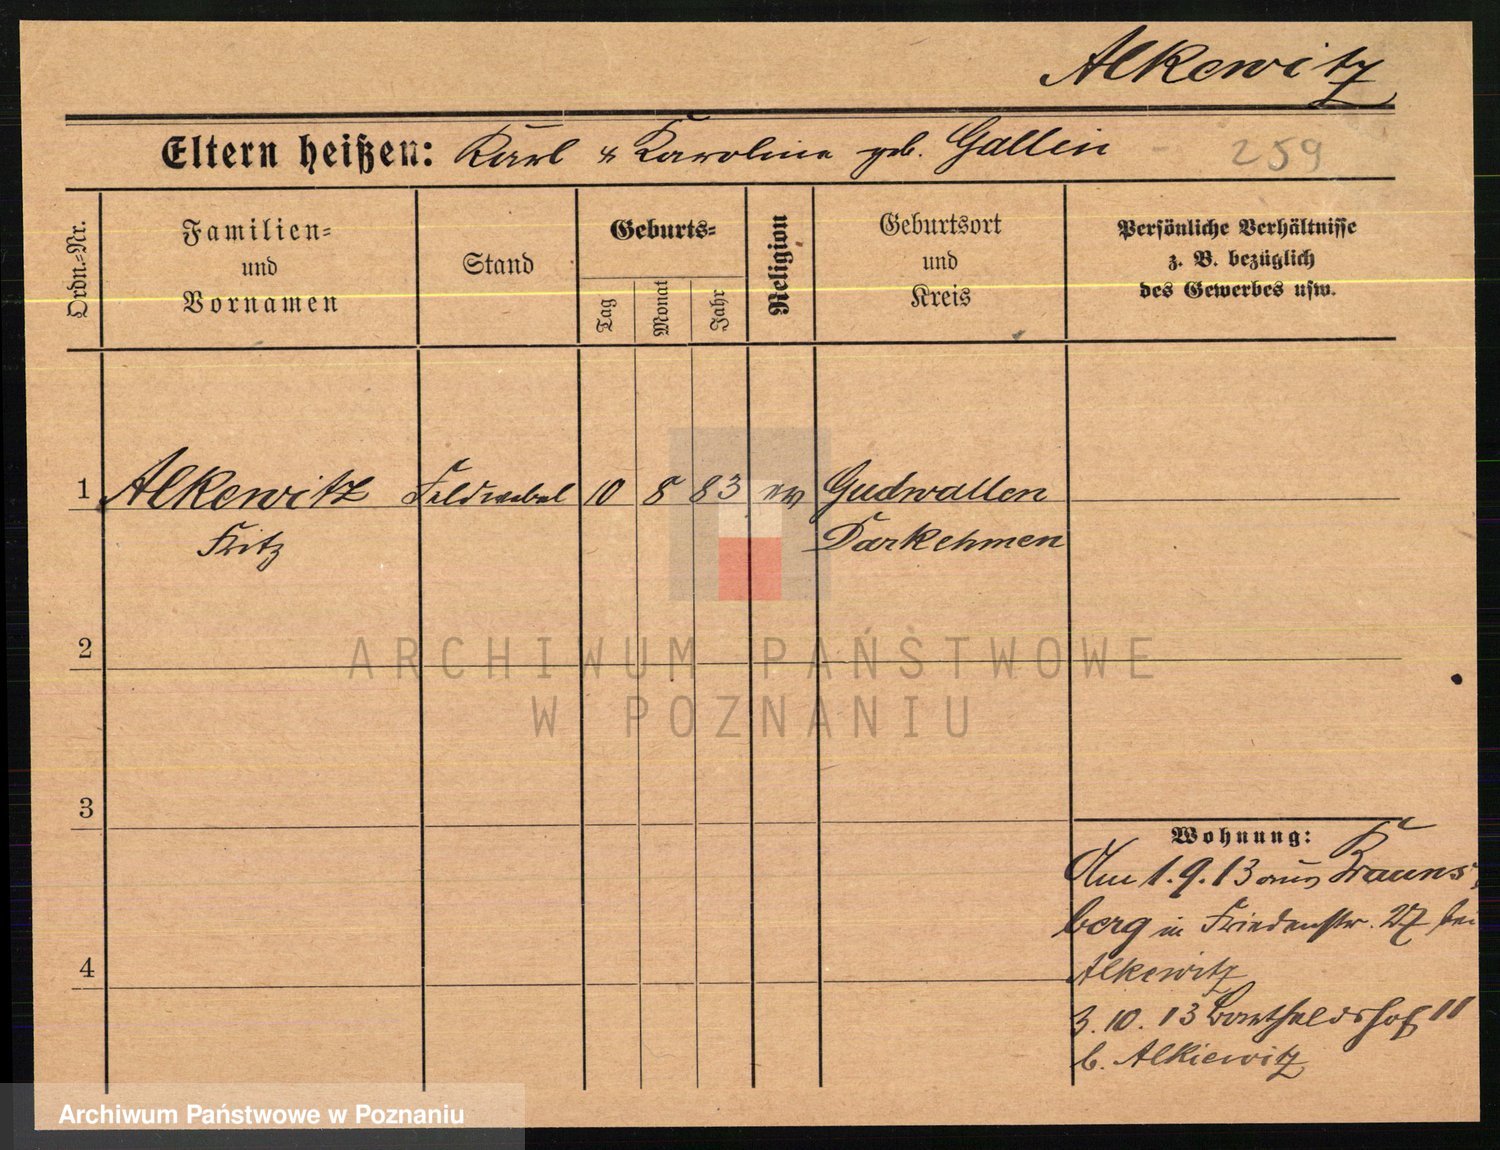 Alkewitz
Eltern heißen: Karl & Karoline geb. Gallin - 259
Ordn.=Nr.
Familien=
und
Vornamen
Stand
Geburts=
Tag
Monat
Jahr
Religion
Geburtsort
und
Kreis
Persönliche Verhältnisse
z. B. bezüglich
des Gewerbes usw.
1 Alkewitz Feldwebel 10 8 83 ev Gudwallen
Fritz Darkehmen
2
3
4
Wohnung:
Am 1.9.13 aus Brauns-
berg in Friedenstr. 27 bei
Alkewitz
3.10.13 Bartholdshof 11
b. Alkiewitz
ARCHIWUM PAŃSTWOWE
W POZNANIU
Archiwum Państwowe w Poznaniu